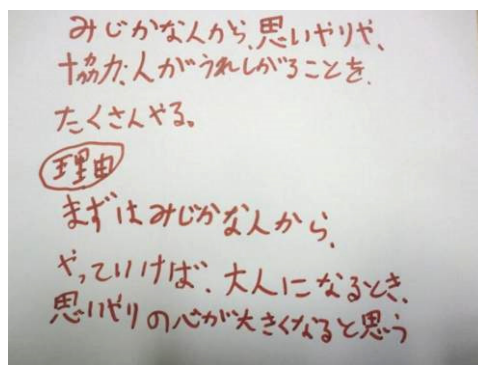 みじかな人から、思いやりや、
協力、人がうれしがることを、
たくさんやる。
理由
まずはみじかな人から、
やっていけば、大人になるとき、
思いやりの心が大きくなると思う